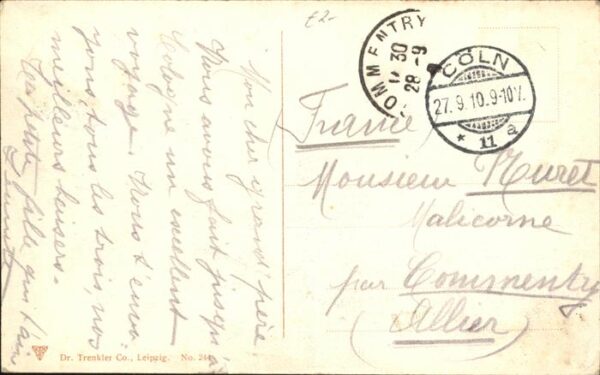 £2-
COMMENTRY
11 30
28-9
CÖLN
27.9.10.9-10V.
* 11 a
Mon cher grand'père
Nous avons fait jusqu'à
Cologne un excellent
voyage. Nous t'envo-
yons, tous les trois, nos
meilleurs baisers.
Ta petite fille qui t'aime
France
Monsieur Muret
Malicorne
par Commentry
(Allier)
Dr. Trenkler Co., Leipzig. No. 244